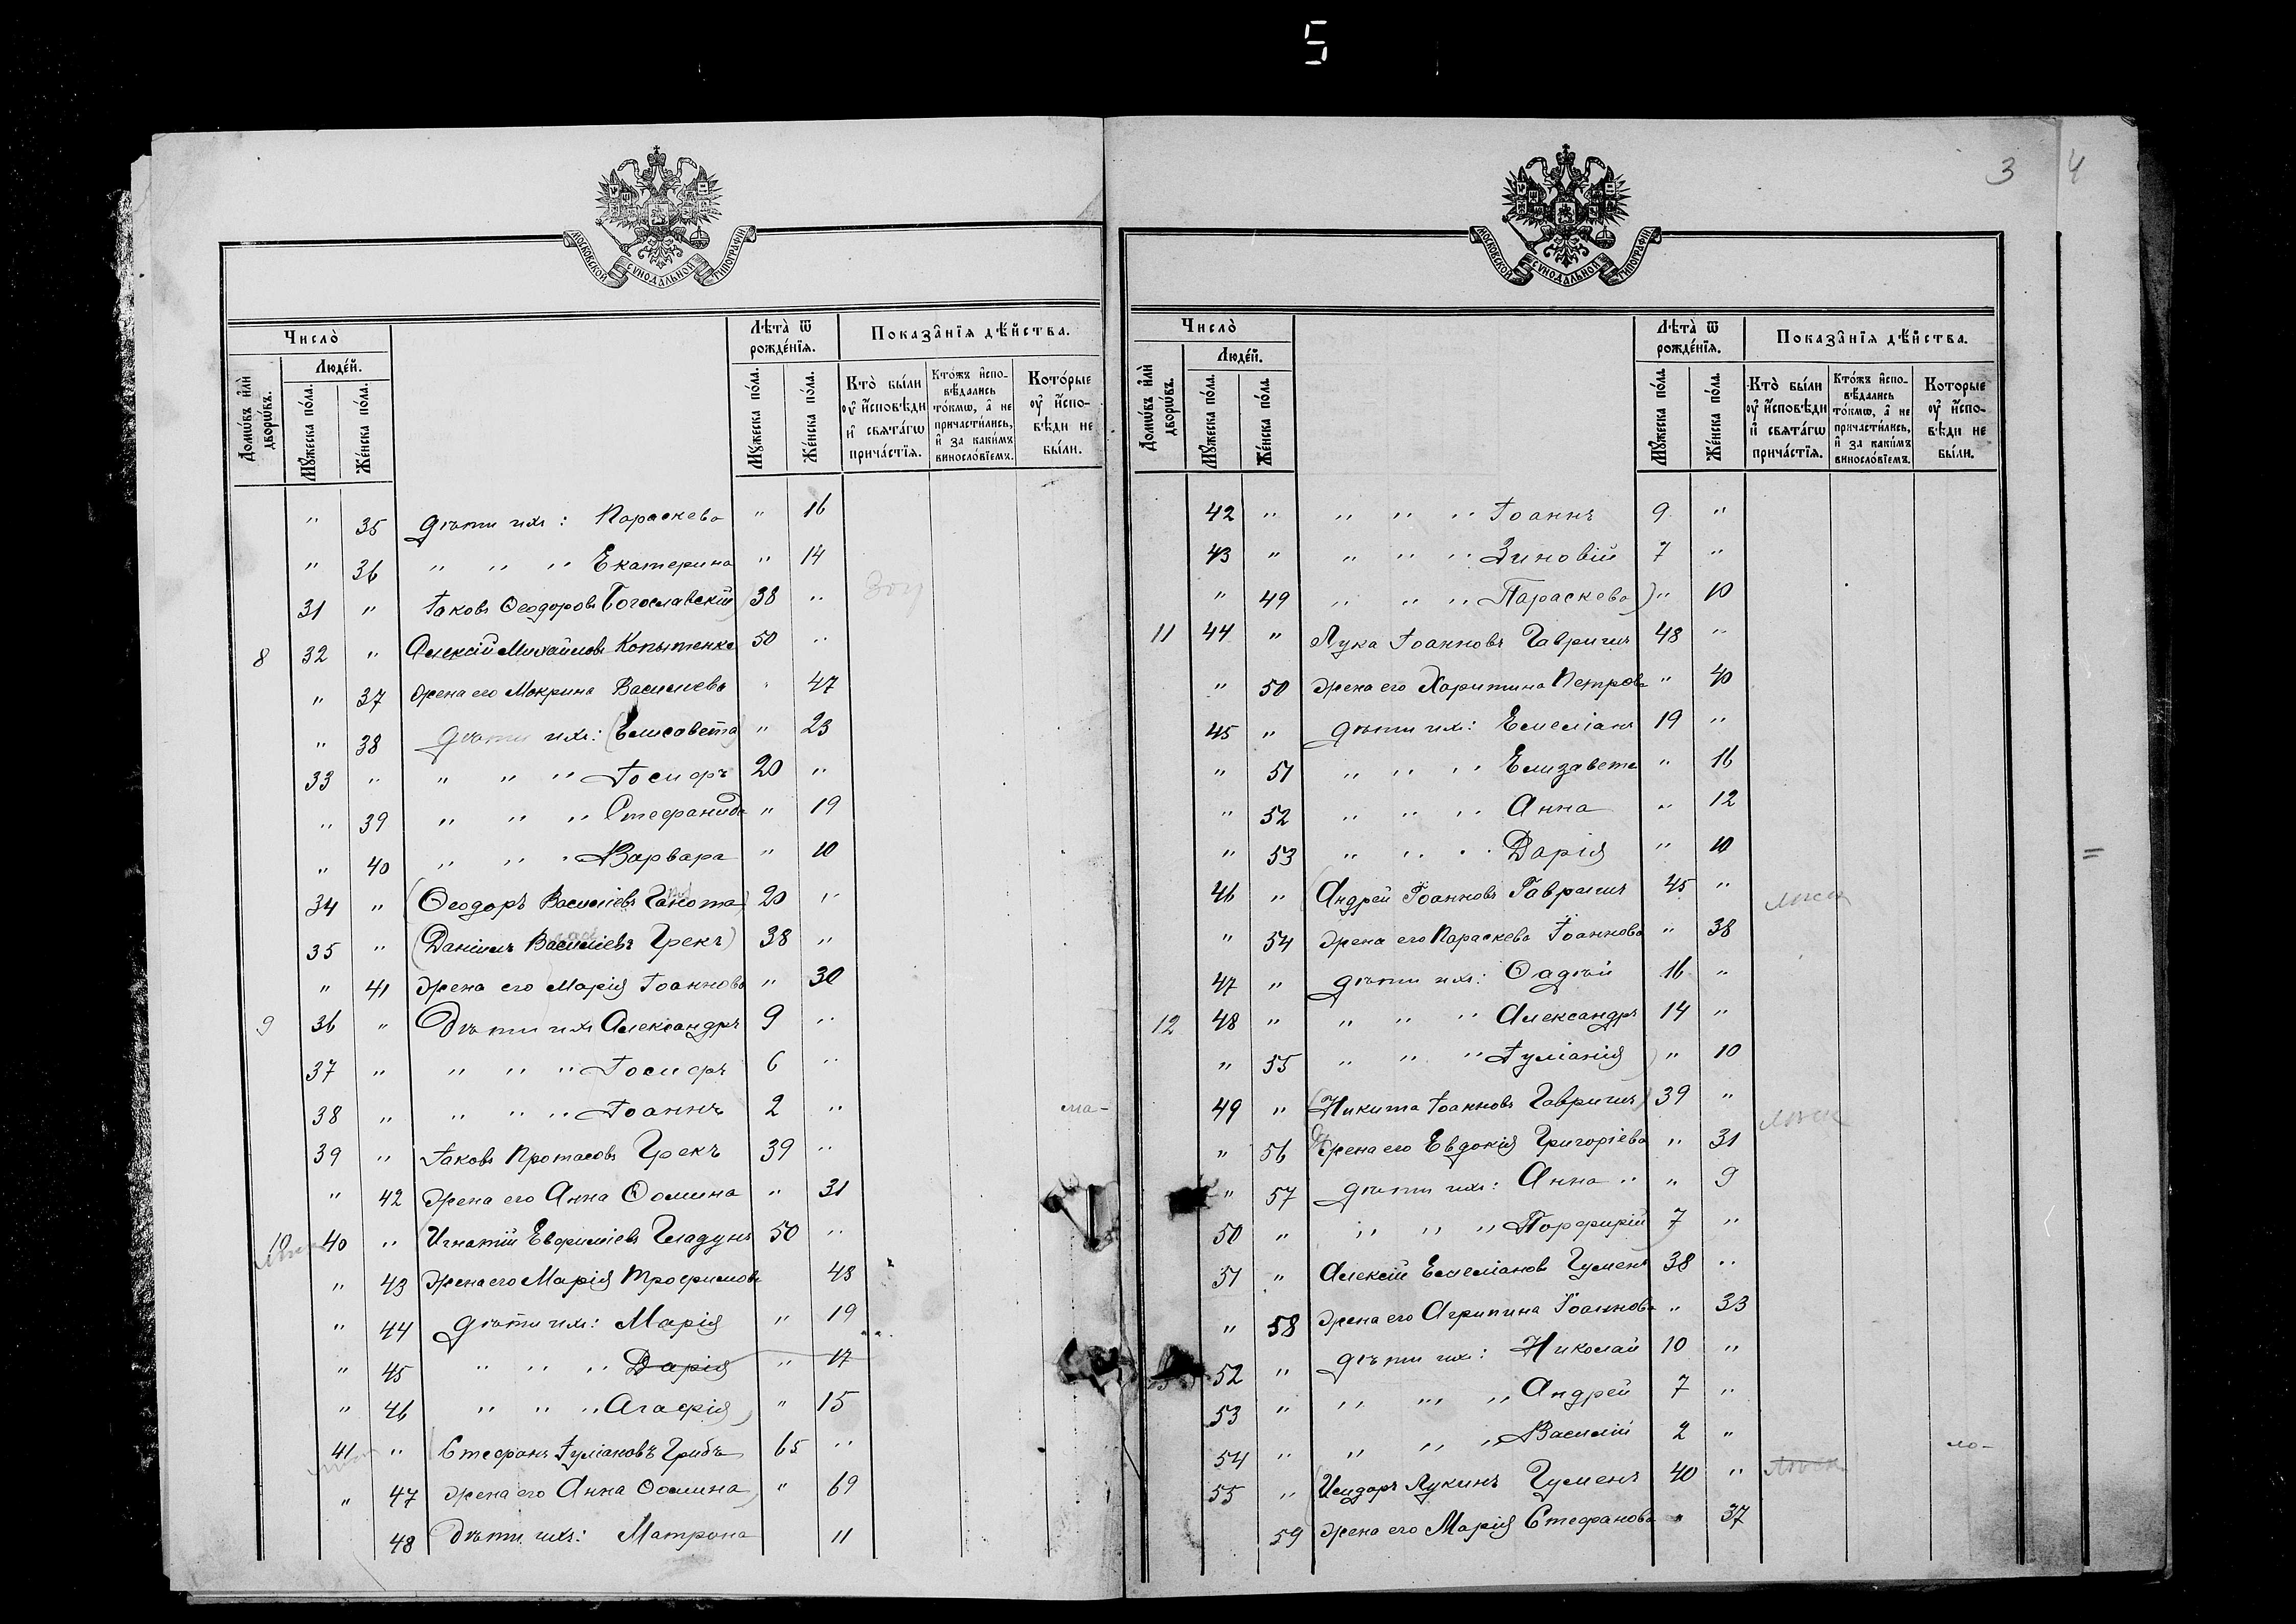 5
МОСКОВСКОЙ СѴНОДАЛЬНОЙ ТИПОГРАФІИ
Число̀
Людей.
Домѡвъ или дворѡвъ.
Мꙋжеска пола.
Женска пола.
Лѣта ѿ рожденїѧ.
Мꙋжеска пола.
Женска пола.
Показанїѧ дѣйства.
Кто были оу исповѣди и свѧтагѡ причастїѧ.
Ктожъ исповѣдались токмѡ, а не причастились, и за какимъ винословїемъ.
Которые оу исповѣди не были.
" 35 дѣти ихъ: Параскева " 16
" 36 " " " Екатерина " 14
31 " Іаковъ Ѳеодоровъ Богославскій) 38 "
8 32 " Алексій Михайловъ Копытенко 50 "
" 37 жена его Макрина Василіева " 47
" 38 дѣти ихъ: (Елисавета) " 23
33 " " " " Іосифъ 20 "
" 39 " " " Стефанида " 19
" 40 " " " Варвара " 10
34 " (Ѳеодоръ Василіевъ ) 20 "
35 " (Даніилъ Василіевъ Грекъ) 38 "
" 41 жена его Марія Іоаннова " 30
9 36 " Дѣти ихъ Александръ 9 "
37 " " " " Іосифъ 6 "
38 " " " " Іоаннъ 2 "
39 " Іаковъ Протасовъ Грекъ 39 "
" 42 жена его Анна Ѳомина " 31
10 40 " Игнатій Евфиміевъ Гладунъ 50 "
" 43 жена его Марія Трофимова 43
" 44 дѣти ихъ: Марія " 19
" 45 " " " Дарія " 17
" 46 " " " Агафія) " 15
41 " (Стефанъ Іуліановъ Грибъ 65 "
" 47 жена его Анна Ѳомина) " 69
48 Дѣти ихъ: Матрона 11
3 4
МОСКОВСКОЙ СѴНОДАЛЬНОЙ ТИПОГРАФІИ
Число̀
Людей.
Домѡвъ или дворѡвъ.
Мꙋжеска пола.
Женска пола.
Лѣта ѿ рожденїѧ.
Мꙋжеска пола.
Женска пола.
Показанїѧ дѣйства.
Кто были оу исповѣди и свѧтагѡ причастїѧ.
Ктожъ исповѣдались токмѡ, а не причастились, и за какимъ винословїемъ.
Которые оу исповѣди не были.
42 " " " " Іоаннъ 9 "
43 " " " " Зиновій 7 "
" 49 " " " Параскева) " 10
11 44 " Лука Іоанновъ Гавришъ 48 "
" 50 жена его Харитина Петрова " 40
45 " дѣти ихъ: Емеліанъ 19 "
" 51 " " " Елизавета " 16
" 52 " " " Анна " 12
" 53 " " " Дарія " 10
46 " (Андрей Іоанновъ Гавришъ 45 "
" 54 жена его Параскева Іоаннова " 38
47 " дѣти ихъ: Ѳадѣй 16 "
12 48 " " " " Александръ 14 "
" 55 " " " Іуліанія) " 10
49 " (Никита Іоанновъ Гавришъ) 39 "
" 56 жена его Евдокія Григоріева " 31
" 57 дѣти ихъ: Анна " " 9
50 " " " " Порфирій 7 "
51 " Алексій Емеліановъ Гуменъ 38 "
" 58 жена его Агрипина Іоаннова " 33
52 " дѣти ихъ: Николай 10 "
53 " " " " Андрей 7 "
54 " " " " Василій 2 "
55 " (Исидоръ Лукинъ Гуменъ 40 "
59 жена его Марія Стефанова " 37